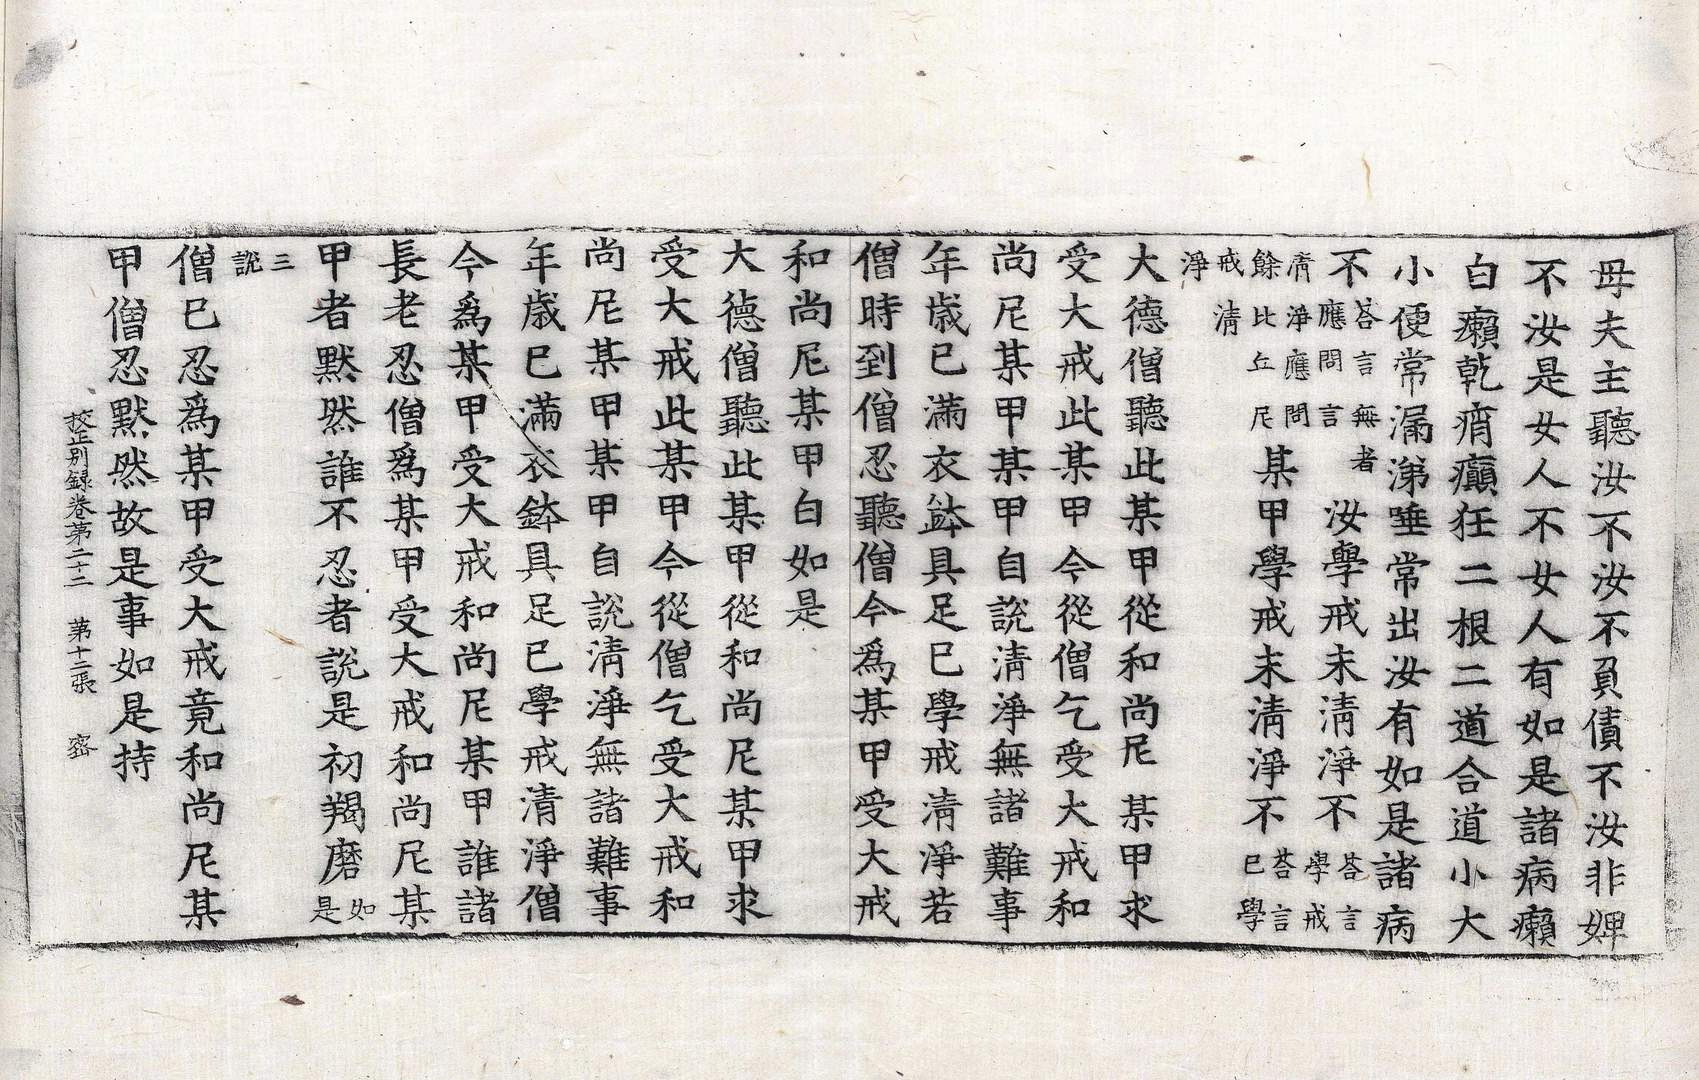 母夫主聽汝不汝不負債不汝非婢
不汝是女人不女人有如是諸病癩
白癩乾痟癲狂二根二道合道小大
小便常漏涕唾常出汝有如是諸病
不荅言無者應問言汝學戒未清淨不荅言學戒
清淨應問餘比丘尼某甲學戒未清淨不荅言已學
戒清淨
大德僧聽此某甲從和尚尼某甲求
受大戒此某甲今從僧乞受大戒和
尚尼某甲某甲自說清淨無諸難事
年歲已滿衣鉢具足已學戒清淨若
僧時到僧忍聽僧今爲某甲受大戒
和尚尼某甲白如是
大德僧聽此某甲從和尚尼某甲求
受大戒此某甲今從僧乞受大戒和
尚尼某甲某甲自說清淨無諸難事
年歲已滿衣鉢具足已學戒清淨僧
今爲某甲受大戒和尚尼某甲誰諸
長老忍僧爲某甲受大戒和尚尼某
甲者默然誰不忍者說是初羯磨如是
三說
僧已忍爲某甲受大戒竟和尚尼某
甲僧忍默然故是事如是持
校正別錄卷第二十二 第十二張 密